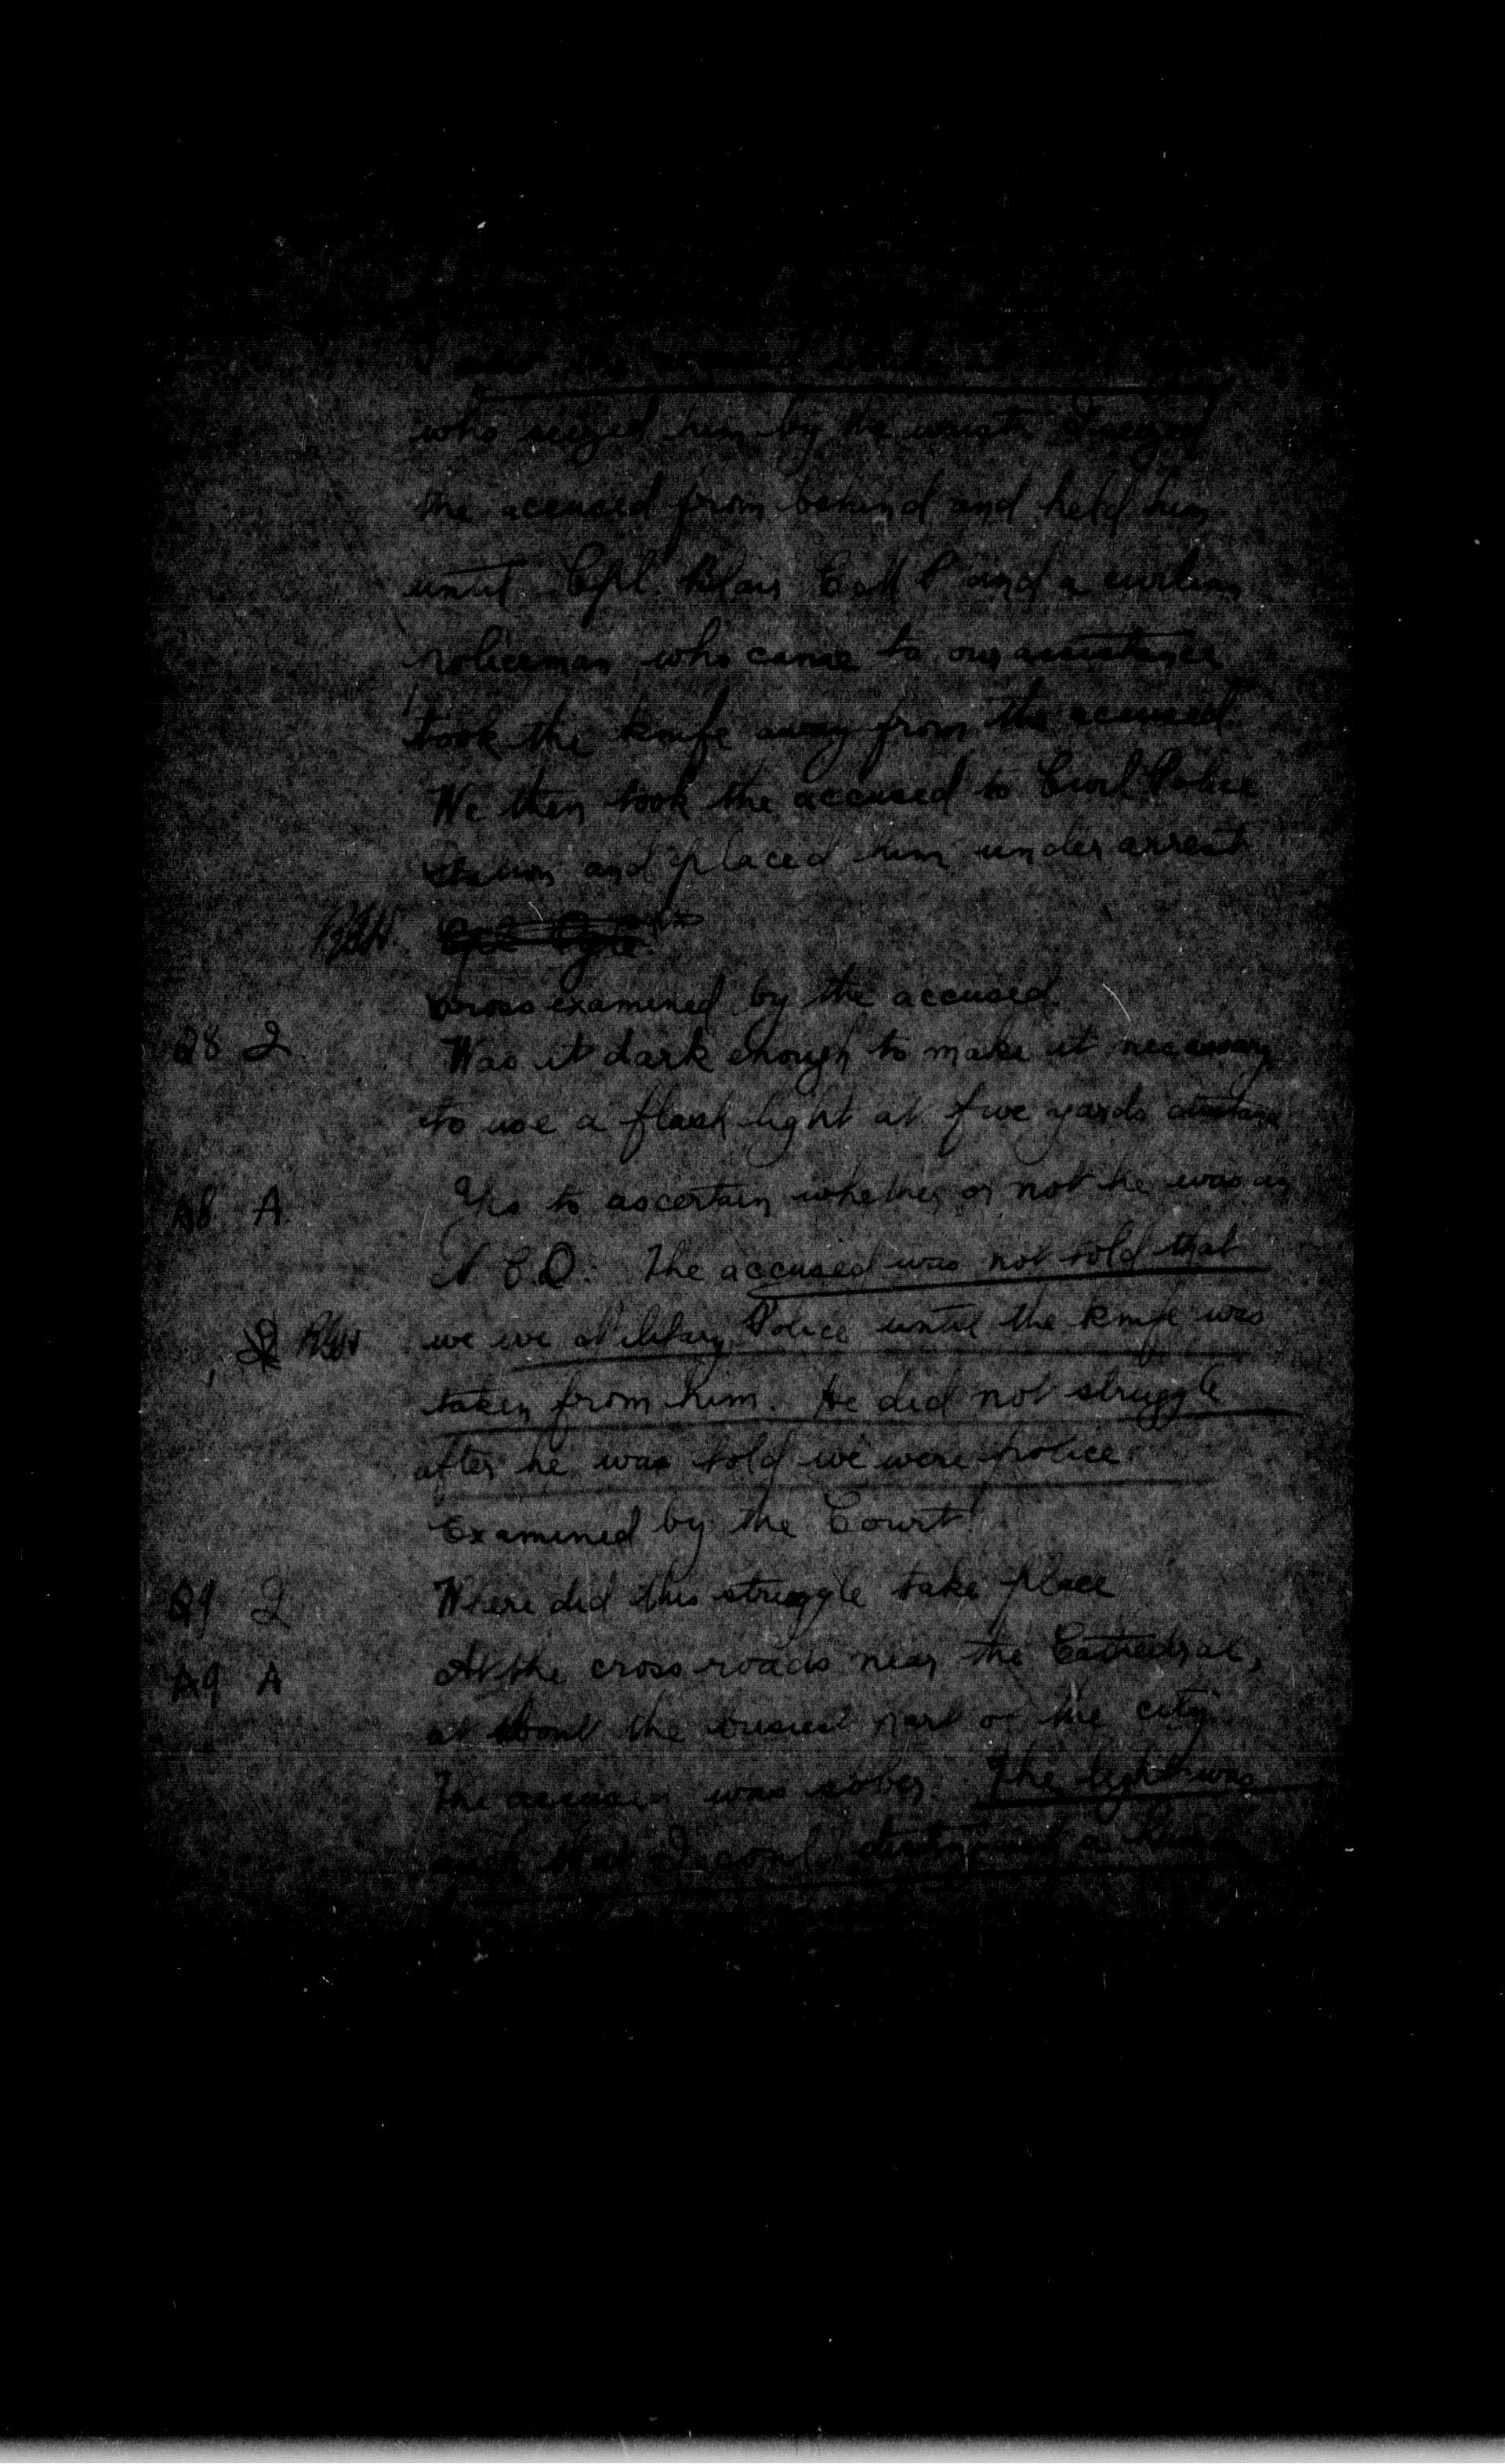 I saw the accused
who seized him by the wrist. I seized
the accused from behind and held him
until Cpl. Blair and a civilian
policeman who came to our assistance
took the knife away from the accused
We then took the accused to Civil Police
Station and placed him under arrest
Cross examined by the accused.
Q8 Q. Was it dark enough to make it necessary
to use a flash light at five yards distance
A8 A. Yes to ascertain whether or not he was an
N.C.O. The accused was not told that
we Military Police until the knife was
taken from him. He did not struggle
after he was told we were police.
Examined by the Court
Q9 Q Where did this struggle take place
A9 A At the cross roads near the Cathedral,
at about the busiest part of the city.
The accused was sober. The light was
such that I could distinguish a